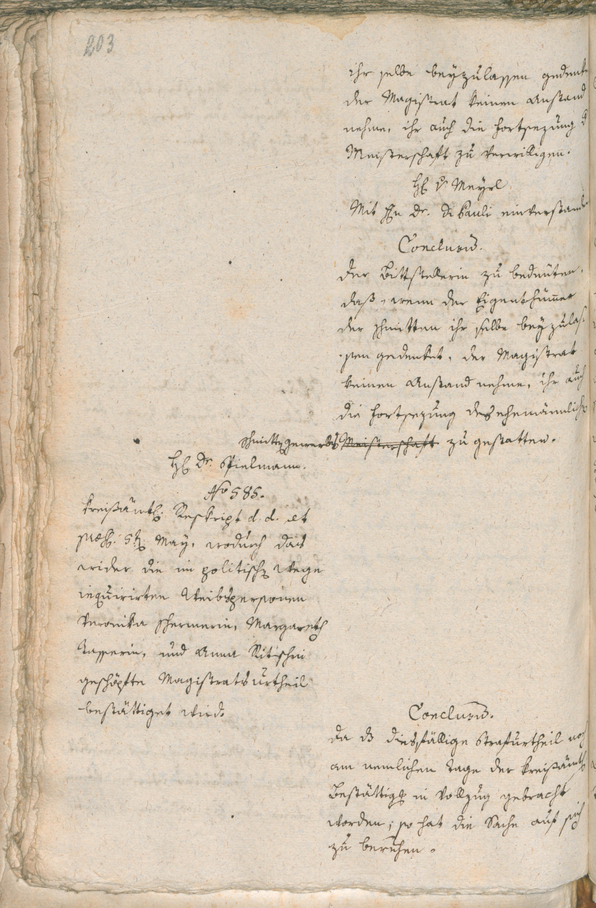 203
ihr selbe beyzulassen gedenkt
der Magistrat keinen Anstand
nehme, ihr auch die Fortsezung
Meisterschaft zu verwilligen.
H. v. Mayrl
Mit Hn Dr. Di Pauli einverstanden
Conclusum.
Der Bittstellerin zu bedeuten,
daß, wenn der Eigenthümer
der Hütten ihr selbe beyzulas-
sen gedenket, der Magistrat
keinen Anstand nehme, ihr auch
die Fortsezung des ehemännlich
Meisterschaft zu gestatten.
H. Dr. Spielmann.
No 585.
Kreisämtl. Reskript d. d. et
May, wodurch das
wider die im politisch. Wege
inquirirten Weibspersonen
Veronika Margareth
und Anna
geschöpfte Magistratsurtheil
bestättiget wird.
Conclusum.
Da diesfällige Strafurtheil noch
am nemlichen Tage der kreisämtl.
Bestättigg in Vollzug gebracht
worden; so hat die Sache auf sich
zu beruhen.